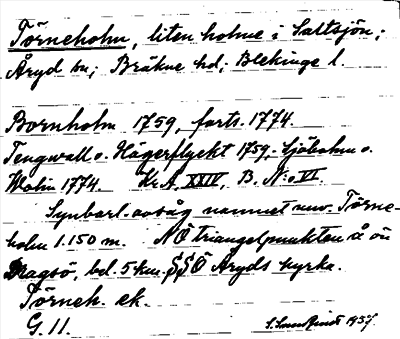 Törneholm, liten holme i Saltsjön;
Åryd sn; Bräkne hd; Blekinge l.
Bornholm 1759, forts. 1774.
Tengwall o. Hägerflyckt 1759; Sjöbohm o.
Wolin 1774. Kr.A. XXIV, B. N:o VI.
Synbarl. avsåg namnet nuv. Törne-
holm 1.150 m. NÖ triangelpunkten å ön
Dragsö, bel. 5 km. SSÖ Åryds kyrka.
Törneh. ek.
G. 11.
1937.